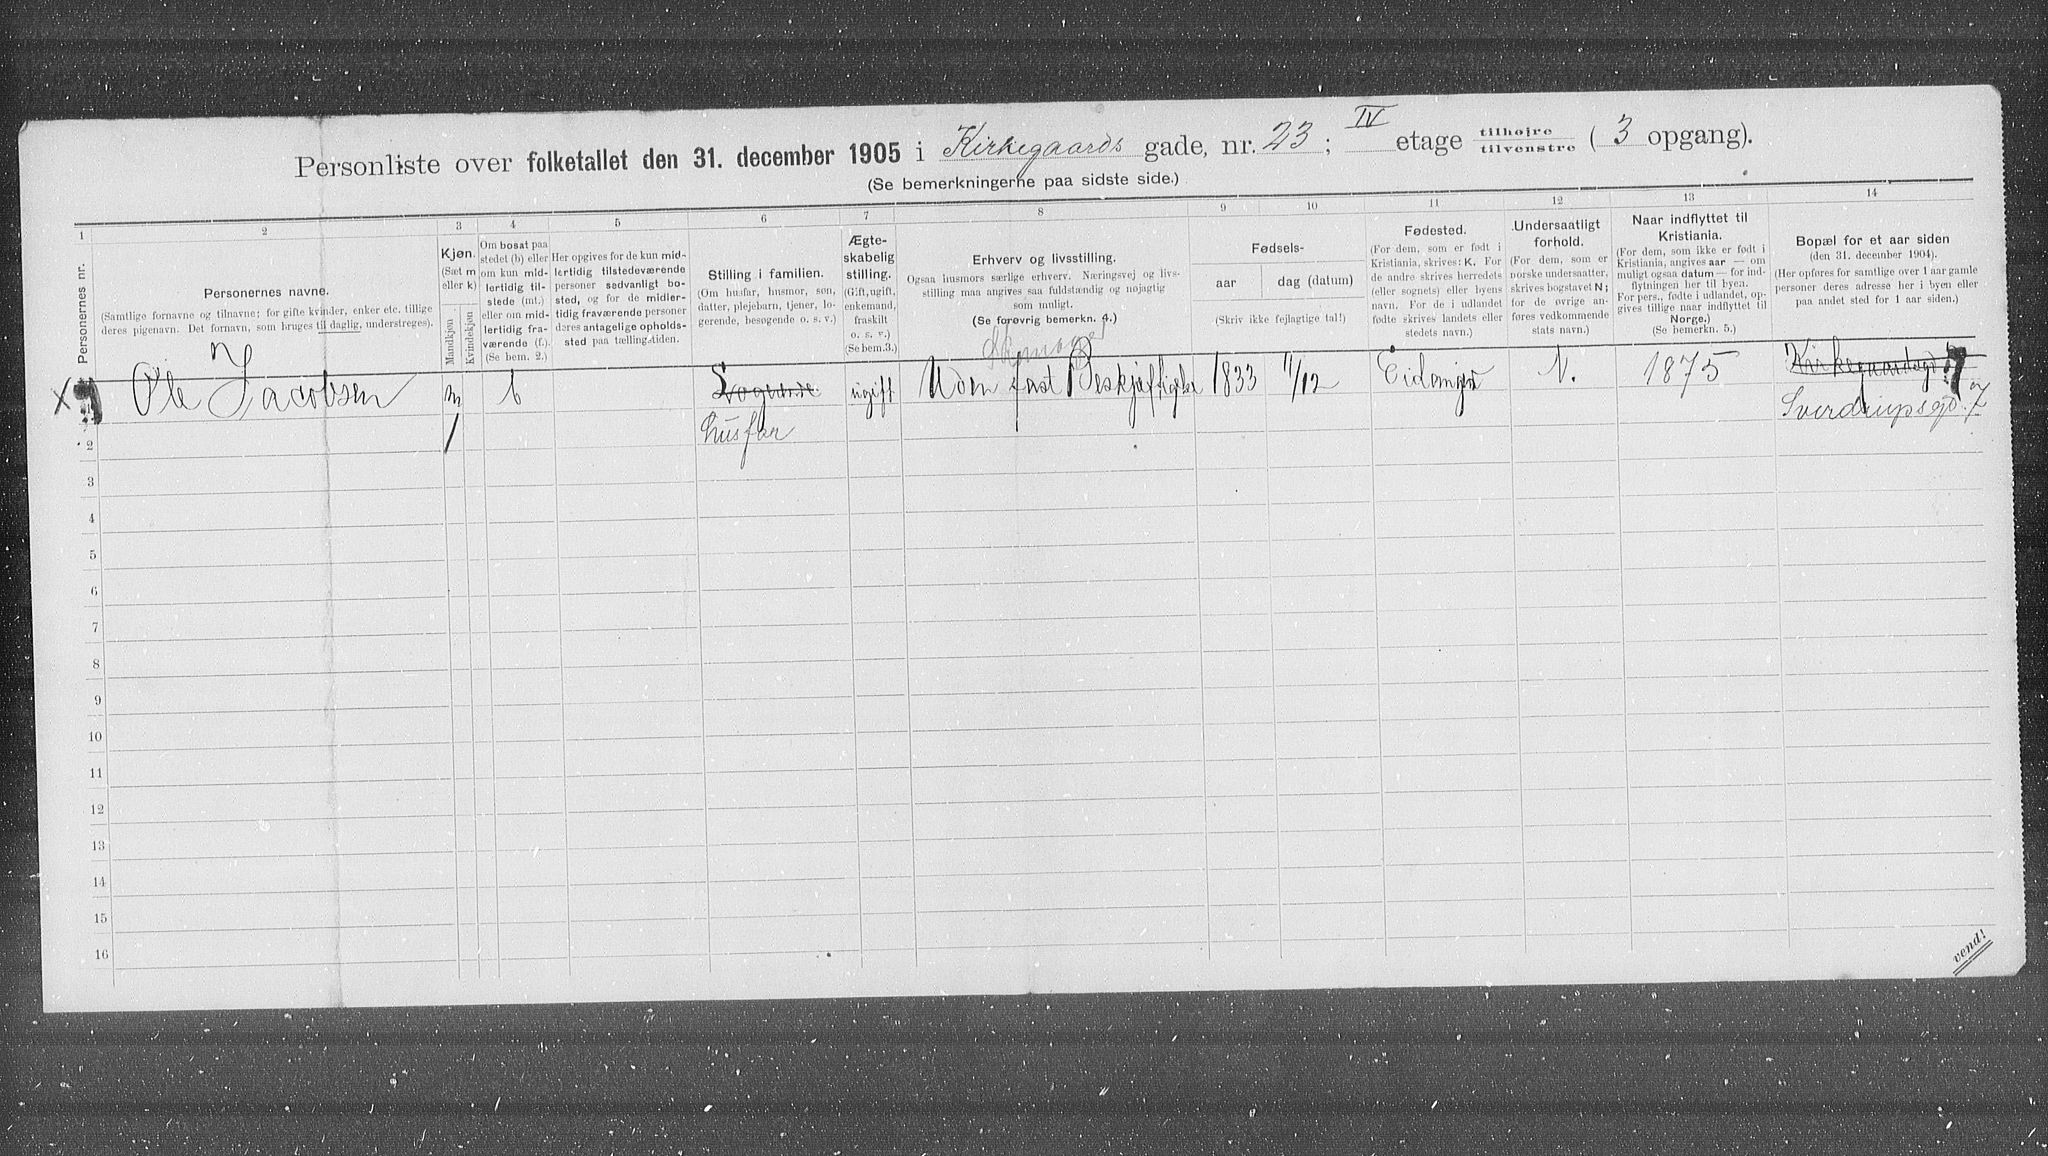 Personliste over folketallet den 31. december 1905 i Kirkegaards gade, nr. 23; IV etage tilhøjre tilvenstre (3 opgang).
(Se bemerkningerne paa sidste side.)
1 2 3 4 5 6 7 8 9 10 11 12 13 14
Personernes nr.
Personernes navne.
(Samtlige fornavne og tilnavne; for gifte kvinder, enker etc. tillige
deres pigenavn. Det fornavn, som bruges til daglig, understreges).
Kjøn.
(Sæt m
eller k)
Mandkjøn
Kvindekjøn
Om bosat paa
stedet (b) eller
om kun mid-
lertidig til-
stede (mt.)
eller om mid-
lertidig fra-
værende (f.).
(Se bem. 2.)
Her opgives for de kun mid-
lertidig tilstedeværende
personer sedvanligt bo-
sted, og for de midler-
tidig fraværende personer
deres antagelige opholds-
sted paa tællingstiden.
Stilling i familien.
(Om husfar, husmor, søn,
datter, plejebarn, tjener, lo-
gerende, besøgende o. s. v.)
Ægte-
skabelig
stilling.
(Gift, ugift,
enkemand,
fraskilt
o. s. v.)
(Se bem. 3.)
Erhverv og livsstilling.
Ogsaa husmors særlige erhverv. Næringsvej og livs-
stilling maa angives saa fuldstændig og nøjagtig
som muligt.
(Se forøvrig bemerkn. 4.)
Fødsels-
aar
dag (datum)
(Skriv ikke fejlagtige tal!)
Fødested.
(For dem, som er født i
Kristiania, skrives: K. For
de andre skrives herredets
(eller sognets) eller byens
navn. For de i udlandet
fødte skrives landets eller
stedets navn.)
Undersaatligt
forhold.
(For dem, som er
norske undersaatter,
skrives bogstavet N;
for de øvrige an-
føres vedkommende
stats navn.)
Naar indflyttet til
Kristiania.
(For dem, som ikke er født i
Kristiania, angives aar — om
muligt ogsaa datum — for ind-
flytningen her til byen.
For pers., fødte i udlandet, op-
gives tillige naar indflyttet til
Norge.)
(Se bemerkn. 5.)
Bopæl for et aar siden
(den 31. december 1904).
(Her opføres for samtlige over 1 aar gamle
personer deres adresse her i byen eller
paa andet sted for 1 aar siden.)
Skomager
x Ole Jacobsen m b Logerende ugift Uden fast Beskjæftigelse 1833 11/12 Eidanger N. 1875 Kirkegaardsgd
1 husfar Sverdrupsgd. 7
2
3
4
5
6
7
8
9
10
11
12
13
14
15
16
vend!